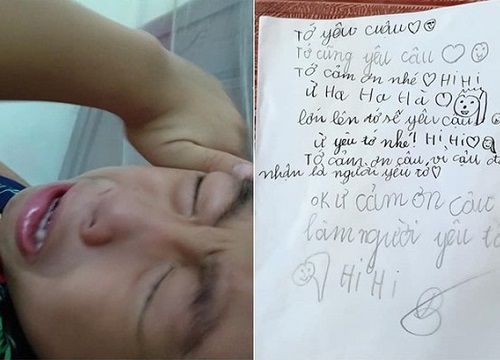 Tớ yêu cuâu♡
Tớ cũng yêu câu ♡
Tớ cảm ơn nhé ♡ Hi Hi
Ừ Ha Ha Hà ♡
lớn lên tớ sẽ yêu cậu
Ừ yêu tớ nhé! Hi Hi♡
Tớ cảm ơn câu vì câu đ
nhân là người yêu tớ♡
OK Ừ cảm ơn câu
làm người yêu tớ
Hi Hi